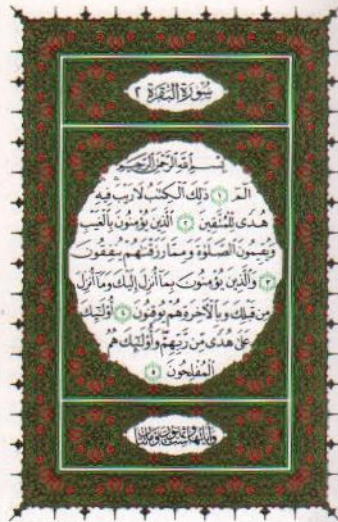 سُورَةُ الْبَقَرَةِ ٢
بِسْمِ اللَّهِ الرَّحْمَٰنِ الرَّحِيمِ
الٓمٓ ١ ذَٰلِكَ الْكِتَٰبُ لَا رَيْبَ فِيهِ
هُدًى لِّلْمُتَّقِينَ ٢ الَّذِينَ يُؤْمِنُونَ بِالْغَيْبِ
وَيُقِيمُونَ الصَّلَوٰةَ وَمِمَّا رَزَقْنَٰهُمْ يُنفِقُونَ
٣ وَالَّذِينَ يُؤْمِنُونَ بِمَا أُنزِلَ إِلَيْكَ وَمَا أُنزِلَ
مِن قَبْلِكَ وَبِالْآخِرَةِ هُمْ يُوقِنُونَ ٤ أُو۟لَٰٓئِكَ
عَلَىٰ هُدًى مِّن رَّبِّهِمْ وَأُو۟لَٰٓئِكَ هُمُ
الْمُفْلِحُونَ ٥